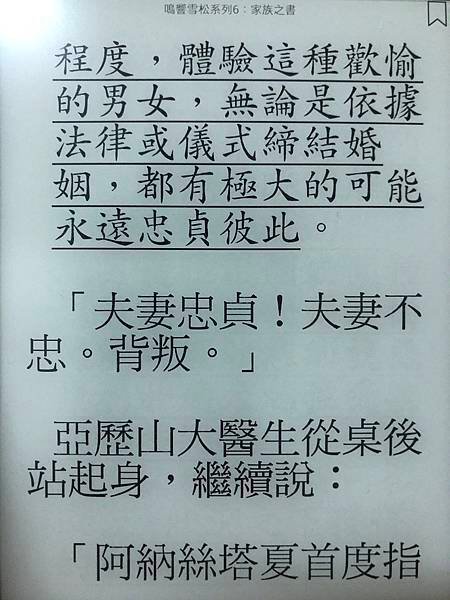 鳴響雪松系列6：家族之書
程度，體驗這種歡愉
的男女，無論是依據
法律或儀式締結婚
姻，都有極大的可能
永遠忠貞彼此。
「夫妻忠貞！夫妻不
忠。背叛。」
亞歷山大醫生從桌後
站起身，繼續說：
「阿納絲塔夏首度指